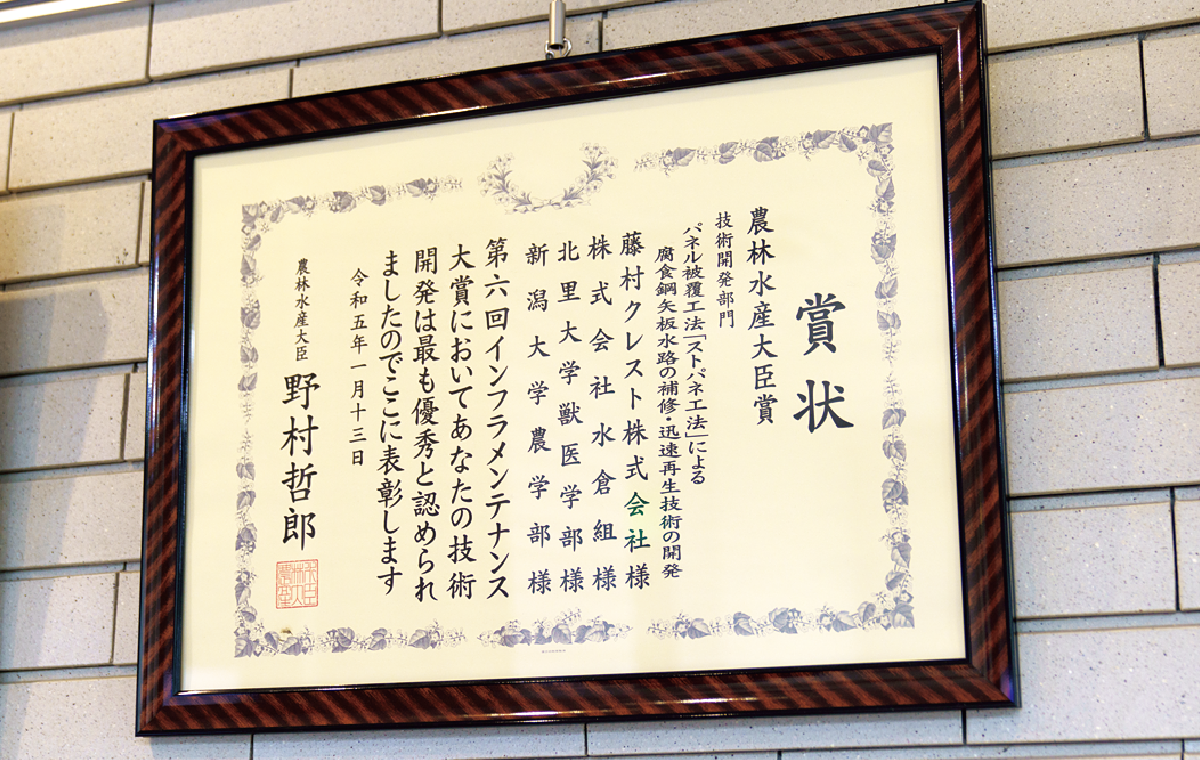 賞状
農林水産大臣賞
技術開発部門
パネル被覆工法「ストパネ工法」による
腐食鋼矢板水路の補修・迅速再生技術の開発
藤村クレスト株式会社様
株式会社水倉組様
北里大学獣医学部様
新潟大学農学部様
第六回インフラメンテナンス
大賞においてあなたの技術
開発は最も優秀と認められ
ましたのでここに表彰します
令和五年一月十三日
農林水産大臣 野村哲郎